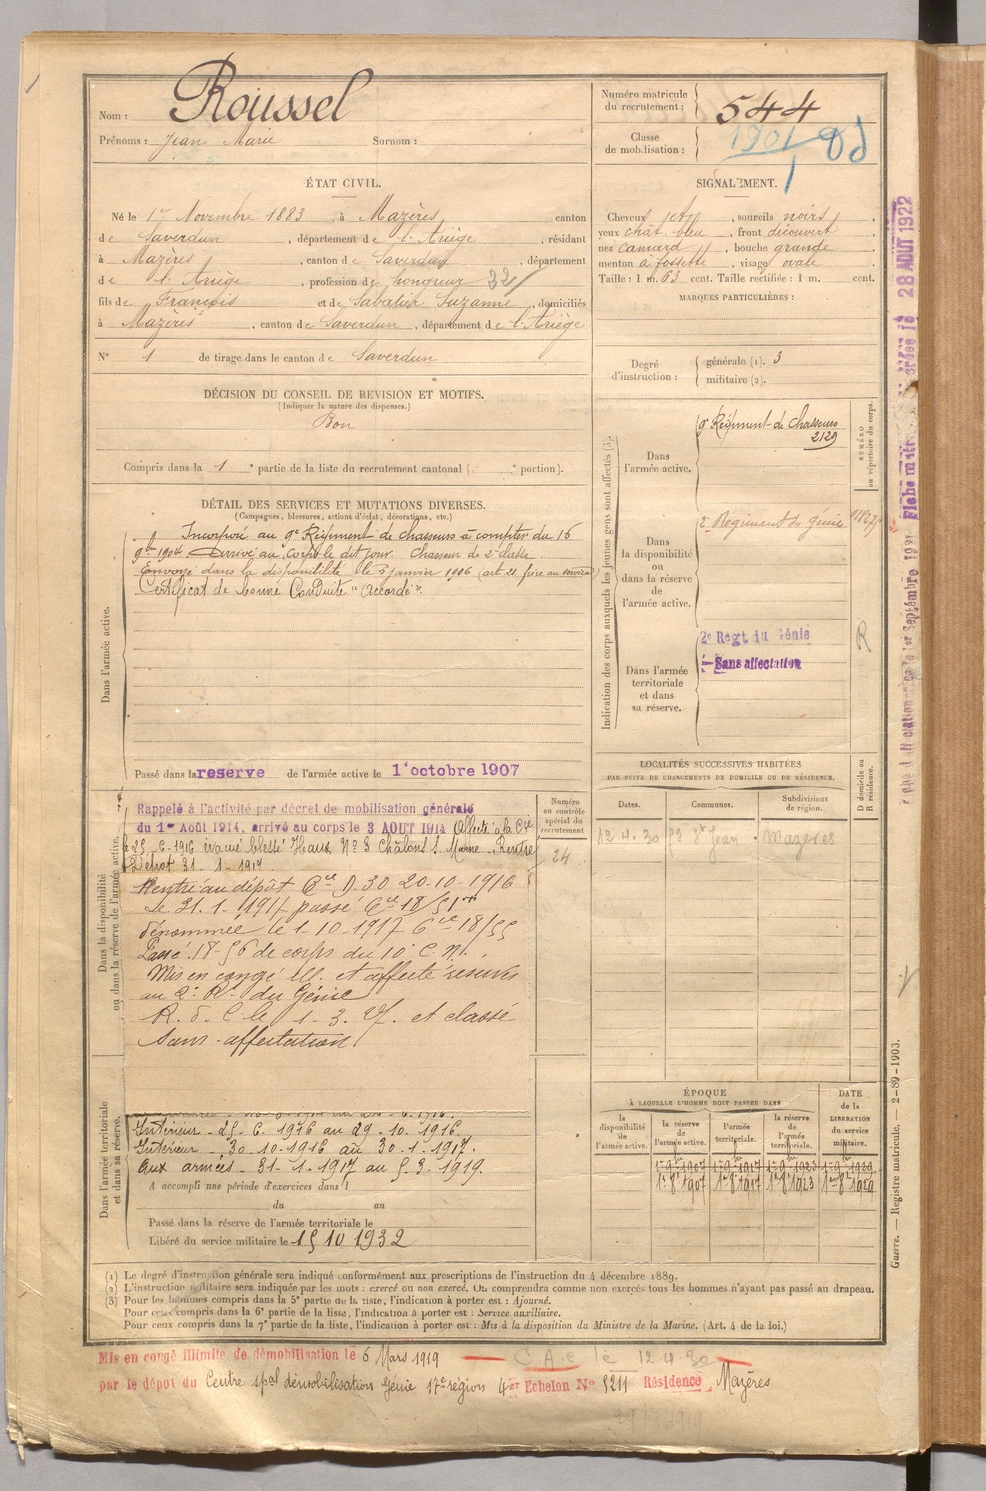 Nom : Roussel
Prénoms : Jean Marie Surnom :
Numéro matricule
du recrutement : 544
Classe
de mobilisation : 1901
ÉTAT CIVIL.
Né le 1er Novembre 1883, à Mazères canton
de Saverdun, département de l'Ariège, résidant
à Mazères, canton de Saverdun, département
de l'Ariège, profession de longueur 32
fils de François et de Sabatier Suzanne, domiciliés
à Mazères, canton de Saverdun, département de l'Ariège
N° 1 de tirage dans le canton de Saverdun
SIGNALEMENT.
Cheveux jets, sourcils noirs,
yeux chât. bleu, front découvert
nez camard, bouche grande
menton à fossette, visage ovale
Taille : 1 m. 63 cent. Taille rectifiée : 1 m. cent.
MARQUES PARTICULIÈRES :
Degré
d'instruction :
générale (1). 3
militaire (2).
DÉCISION DU CONSEIL DE REVISION ET MOTIFS.
(Indiquer la nature des dispenses.)
Bon
Compris dans la 1 e partie de la liste du recrutement cantonal ( e portion).
DÉTAIL DES SERVICES ET MUTATIONS DIVERSES.
(Campagnes, blessures, actions d'éclat, décorations, etc.)
Dans l'armée active.
Incorporé au 9e Régiment de chasseurs à compter du 16
9bre 1904 Arrivé au corps le dit jour. Chasseur de 2e classe
Envoyé dans la disponibilité le 3 janvier 1906 (art. 21. frère au service)
Certificat de bonne Conduite "Accordé".
Passé dans la reserve de l'armée active le 1er octobre 1907
Indication des corps auxquels les jeunes gens sont affectés (3).
Dans
l'armée active.
9e Régiment de chasseurs
2129
NUMÉRO
au répertoire du corps.
Dans
la disponibilité
ou
dans la réserve
de
l'armée active.
2e Régiment du Génie
Dans l'armée
territoriale
et dans
sa réserve.
2e Regt du Génie
Sans affectation
R
LOCALITÉS SUCCESSIVES HABITÉES
PAR SUITE DE CHANGEMENTS DE DOMICILE OU DE RÉSIDENCE.
Dates. Communes. Subdivisions
de région.
D domicile ou
R résidence.
12.4.30 St Jean Mazères
Dans la disponibilité
ou dans la réserve de l'armée active.
Numéro
au contrôle
spécial du
recrutement
24
Rappelé à l'activité par décret de mobilisation générale
du 1er Août 1914, arrivé au corps le 3 AOUT 1914 Affecté à la Cie
le 25.6.1916 évacué blessé Haux N° 3 Châlons s. Marne - Rentré
Dépôt 31-1-1917
Rentré au dépôt Cie D.30 20.10.1916
Le 31.1.1917 passé Cie 18/51
dénommée le 1-10-1917 Cie 18/55
Passé 18-56 de corps du 10e C.
Mis en congé Ill. et affecté réserve
au 2e Rt du Génie
R. d. C le 1-3. 27. et classé
sans-affectation.
Dans l'armée territoriale
et dans sa réserve.
Intérieur - 25.6.1916 au 29.10.1916.
Intérieur - 30.10.1916 au 30.1.1917.
Aux armées - 31.1.1917 au 5.3.1919.
A accompli une période d'exercices dans l
du au
Passé dans la réserve de l'armée territoriale le
Libéré du service militaire le 15 10 1932
ÉPOQUE
À LAQUELLE L'HOMME DOIT PASSER DANS
la
disponibilité
de
l'armée active.
la
réserve
de
l'armée active.
l'armée
territoriale.
la réserve
de
l'armée
territoriale.
DATE
de la
LIBÉRATION
du service
militaire.
1er 9bre 1907 1er 9bre 1917 1er 9bre 1923 1er 9bre 1929
1er 8bre 1907 1er 8bre 1917 1er 8bre 1923 1er 8bre 1929
(1) Le degré d'instruction générale sera indiqué conformément aux prescriptions de l'instruction du 4 décembre 1889.
(2) L'instruction militaire sera indiquée par les mots : exercé ou non exercé. On comprendra comme non exercés tous les hommes n'ayant pas passé au drapeau.
(3) Pour les hommes compris dans la 5e partie de la liste, l'indication à porter est : Ajourné.
Pour ceux compris dans la 6e partie de la liste, l'indication à porter est : Service auxiliaire.
Pour ceux compris dans la 7e partie de la liste, l'indication à porter est : Mis à la disposition du Ministre de la Marine. (Art. 4 de la loi.)
Mis en congé illimité de démobilisation le 6 Mars 1919 le 12.4.30
par le dépôt du Centre spal démobilisation Génie 17e région 4er Echelon N° 5211 Résidence Mazères
Guerre. — Registre matricule. — 2-89-1903.
28 AOUT 1922